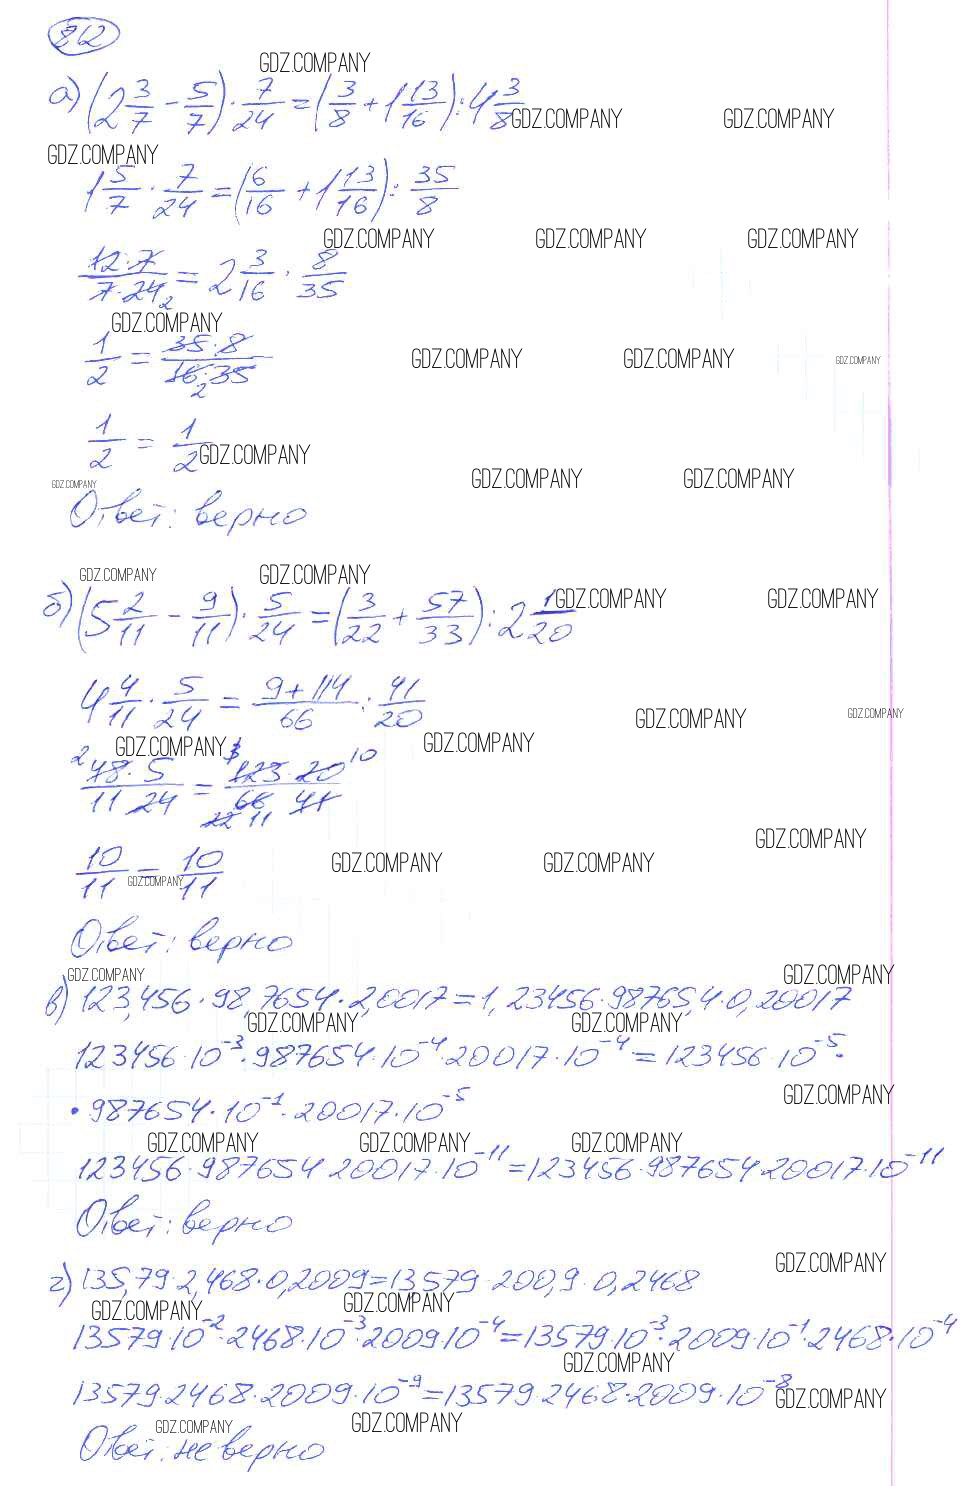 212
GDZ.COMPANY
а) (2 3/7 - 5/7) · 7/24 = (3/8 + 1 13/16) : 4 3/8
GDZ.COMPANY GDZ.COMPANY
GDZ.COMPANY
1 5/7 · 7/24 = (6/16 + 1 13/16) : 35/8
GDZ.COMPANY GDZ.COMPANY GDZ.COMPANY
12·7/7·24 2 = 2 3/16 · 8/35
GDZ.COMPANY
1/2 = 35·8/16·35 2
GDZ.COMPANY GDZ.COMPANY GDZ.COMPANY
1/2 = 1/2
GDZ.COMPANY
GDZ.COMPANY GDZ.COMPANY
GDZ.COMPANY
Ответ: верно
GDZ.COMPANY GDZ.COMPANY
б) (5 2/11 - 9/11) · 5/24 = (3/22 + 57/33) : 2 1/20
GDZ.COMPANY GDZ.COMPANY
4 4/11 · 5/24 = 9+114/66 : 41/20
GDZ.COMPANY GDZ.COMPANY
GDZ.COMPANY GDZ.COMPANY
2 48·5/11 24 = 3 123·20 10/66 41 22 11
10/11 = 10/11
GDZ.COMPANY
GDZ.COMPANY GDZ.COMPANY
GDZ.COMPANY
Ответ: верно
GDZ.COMPANY GDZ.COMPANY
в) 123,456·98,7654·2,0017=1,23456·987654·0,20017
GDZ.COMPANY GDZ.COMPANY
123456·10⁻³·987654·10⁻⁴·20017·10⁻⁴=123456·10⁻⁵·
·987654·10⁻¹·20017·10⁻⁵
GDZ.COMPANY
GDZ.COMPANY GDZ.COMPANY GDZ.COMPANY
123456·987654·20017·10⁻¹¹=123456·987654·20017·10⁻¹¹
Ответ: верно
GDZ.COMPANY
г) 135,79·2,468·0,2009=13,579·200,9·0,2468
GDZ.COMPANY GDZ.COMPANY
13579·10⁻²·2468·10⁻³·2009·10⁻⁴=13579·10⁻³·2009·10⁻¹·2468·10⁻⁴
GDZ.COMPANY
13579·2468·2009·10⁻⁹=13579·2468·2009·10⁻⁸
GDZ.COMPANY
GDZ.COMPANY GDZ.COMPANY
Ответ: не верно